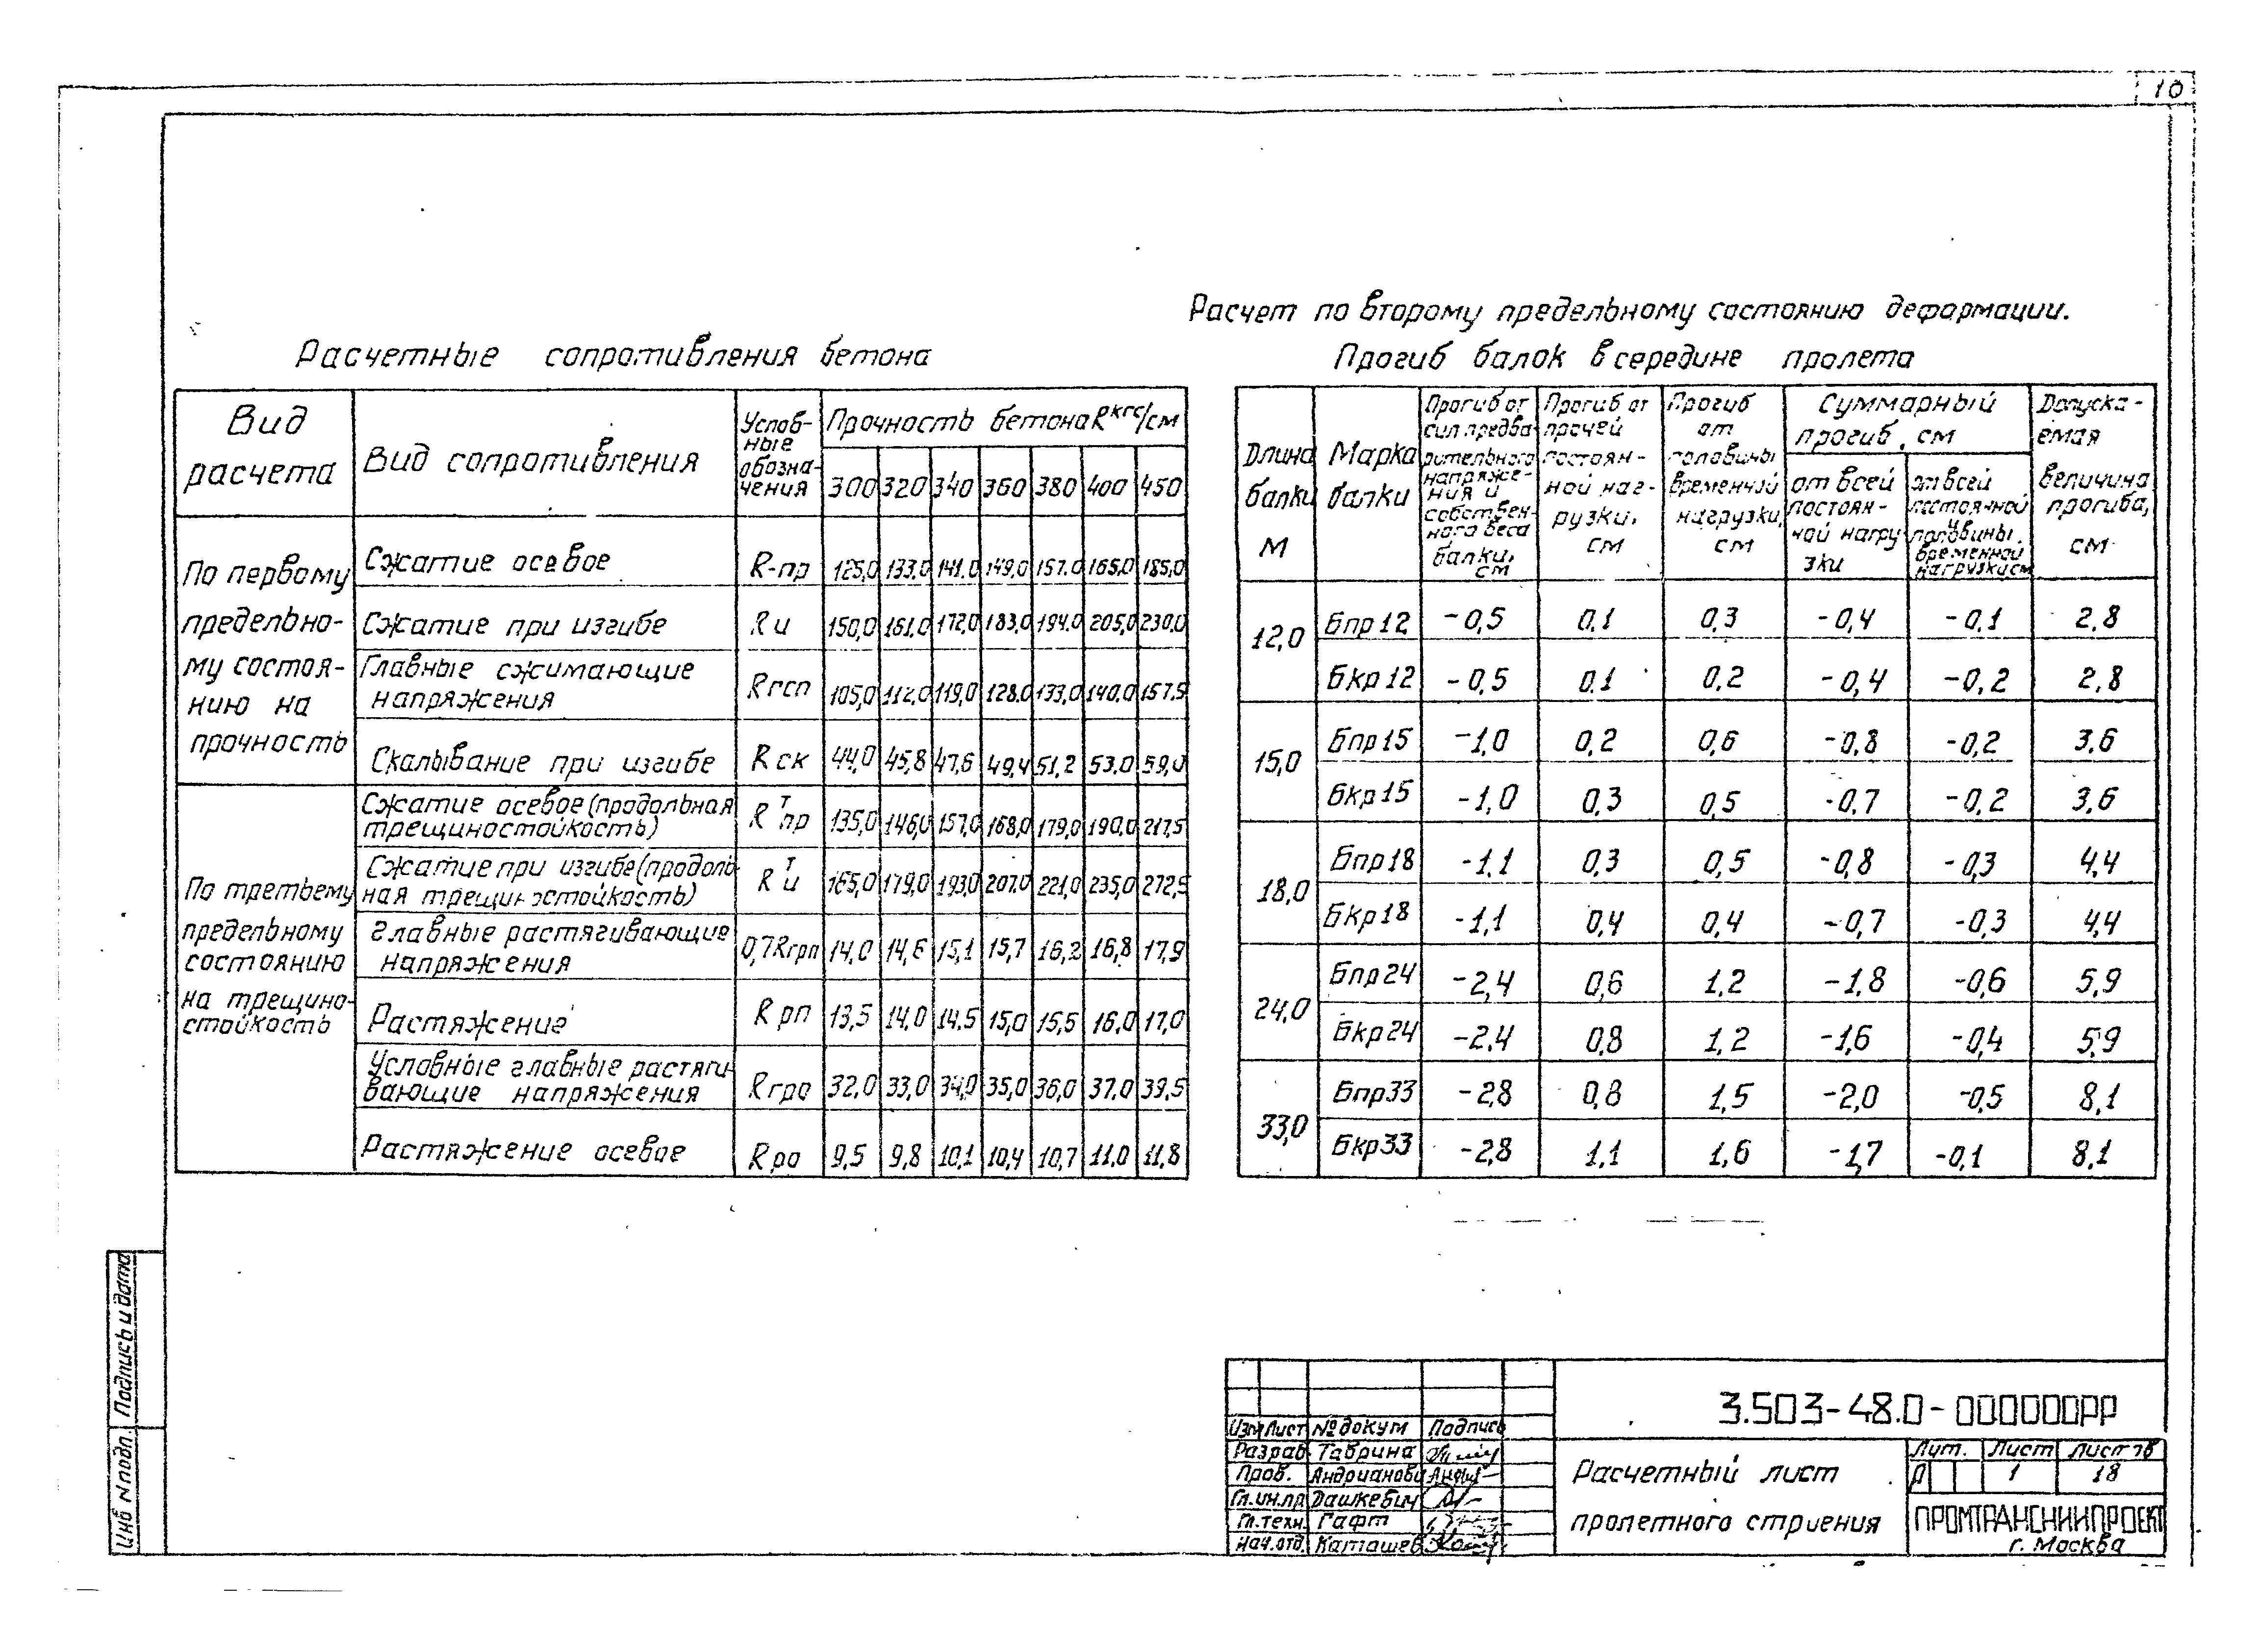 10
Расчетные сопротивления бетона
Вид расчета | Вид сопротивления | Условные обозначения | Прочность бетона R кгс/см
300 | 320 | 340 | 360 | 380 | 400 | 450
По первому предельному состоянию на прочность
Сжатие осевое | R-пр | 125,0 | 133,0 | 141,0 | 149,0 | 157,0 | 165,0 | 185,0
Сжатие при изгибе | Rи | 150,0 | 161,0 | 172,0 | 183,0 | 194,0 | 205,0 | 230,0
Главные сжимающие напряжения | Rгсп | 105,0 | 112,0 | 119,0 | 128,0 | 133,0 | 140,0 | 157,5
Скалывание при изгибе | Rск | 44,0 | 45,8 | 47,6 | 49,4 | 51,2 | 53,0 | 59,0
По третьему предельному состоянию на трещиностойкость
Сжатие осевое (продольная трещиностойкость) | R т пр | 135,0 | 146,0 | 157,0 | 168,0 | 179,0 | 190,0 | 217,5
Сжатие при изгибе (продольная трещиностойкость) | R т и | 165,0 | 179,0 | 193,0 | 207,0 | 221,0 | 235,0 | 272,5
Главные растягивающие напряжения | 0,7Rгрп | 14,0 | 14,6 | 15,1 | 15,7 | 16,2 | 16,8 | 17,9
Растяжение | Rрп | 13,5 | 14,0 | 14,5 | 15,0 | 15,5 | 16,0 | 17,0
Условные главные растягивающие напряжения | Rгро | 32,0 | 33,0 | 34,0 | 35,0 | 36,0 | 37,0 | 39,5
Растяжение осевое | Rро | 9,5 | 9,8 | 10,1 | 10,4 | 10,7 | 11,0 | 11,8
Расчет по второму предельному состоянию деформации.
Прогиб балок в середине пролета
Длина балки м | Марка балки | Прогиб от сил предварительного напряжения и собственного веса балки, см | Прогиб от прочей постоянной нагрузки, см | Прогиб от половины временной нагрузки, см | Суммарный прогиб, см | Допускаемая величина прогиба, см
от всей постоянной нагрузки | от всей постоянной и половины временной нагрузки см
12,0 | Бпр12 | -0,5 | 0,1 | 0,3 | -0,4 | -0,1 | 2,8
Бкр12 | -0,5 | 0,1 | 0,2 | -0,4 | -0,2 | 2,8
15,0 | Бпр15 | -1,0 | 0,2 | 0,6 | -0,8 | -0,2 | 3,6
Бкр15 | -1,0 | 0,3 | 0,5 | -0,7 | -0,2 | 3,6
18,0 | Бпр18 | -1,1 | 0,3 | 0,5 | -0,8 | -0,3 | 4,4
Бкр18 | -1,1 | 0,4 | 0,4 | -0,7 | -0,3 | 4,4
24,0 | Бпр24 | -2,4 | 0,6 | 1,2 | -1,8 | -0,6 | 5,9
Бкр24 | -2,4 | 0,8 | 1,2 | -1,6 | -0,4 | 5,9
33,0 | Бпр33 | -2,8 | 0,8 | 1,5 | -2,0 | -0,5 | 8,1
Бкр33 | -2,8 | 1,1 | 1,6 | -1,7 | -0,1 | 8,1
Подпись и дата
Инв N подл.
Изм Лист | № докум | Подпись
Разраб. | Таврина
Пров. | Андрианова
Гл.ин.пр | Дашкевич
Гл.техн. | Гафт
Нач.отд. | Каташев
3.503-48.0-000000РР
Расчетный лист
пролетного строения
Лит. | Лист | Листов
Р | 1 | 18
ПРОМТРАНСНИИПРОЕКТ
г. Москва